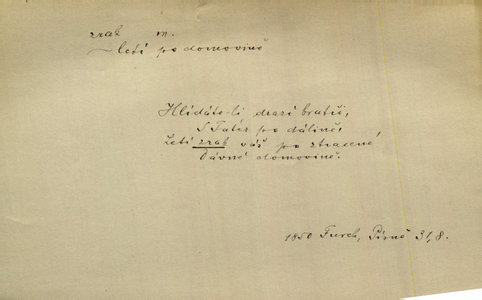 zrak m.
~ letí po domovině
Hlídáte-li drazí bratři,
S Tater po dálině,
Letí zrak váš po ztracené
Dávné domovině.
1850 Furch, Písně 31, 8.